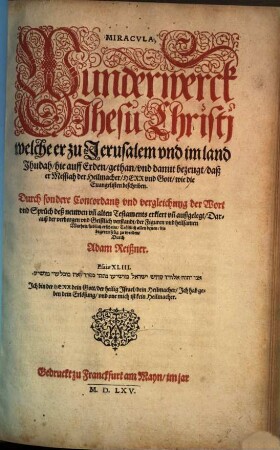 MIRACVLA,
Wunderwerck
Jhesu Christj
welche er zu Jerusalem vnd im land
Jhudah/ hie auff Erden/ gethan/ vnd damit bezeugt/ daß
er Messiah der Heilmacher/ HERR vnd Gott/ wie die
Euangelisten beschreiben.
Durch sondere Concordantz vnd vergleichung der Wort
vnd Sprüch deß neuwen vñ alten Testaments erklert vñ außgelegt/ Dar-
auß der verborgen vnd Geistlich verstandt/ der Figuren vnd heilsamen
Durch
Adam Reißner.
Esaie XLIII.
Ich bin der HERR dein Gott/ der heilig Israel/ dein Heilmacher/ Ich hab ge-
ben dein Erlösung/ vnd one mich ist kein Heilmacher.
Gedruckt zu Franckfurt am Mayn/ im jar
M. D. LXV.